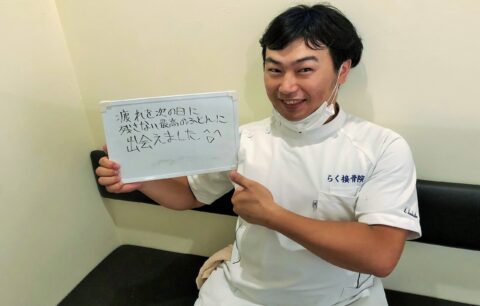 疲れを次の日に
残さない最高のふとんに
出会えました。^O^
らく接骨院